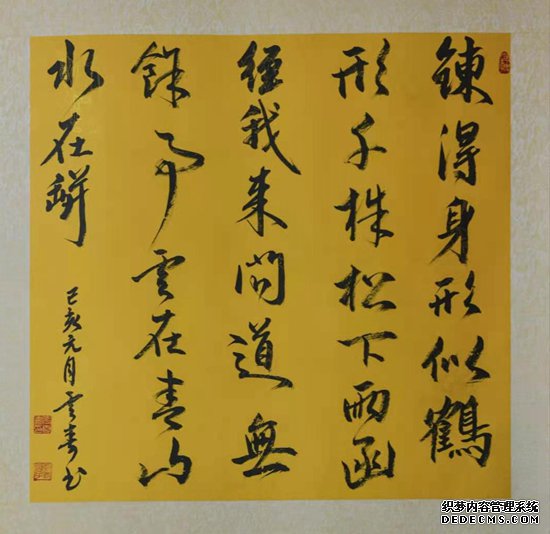 鍊得身形似鶴
形千株松下兩函
經我来問道無
餘事云在青山
水在缾
己亥元月云书
织梦内容管理系统
DEDECMS.COM